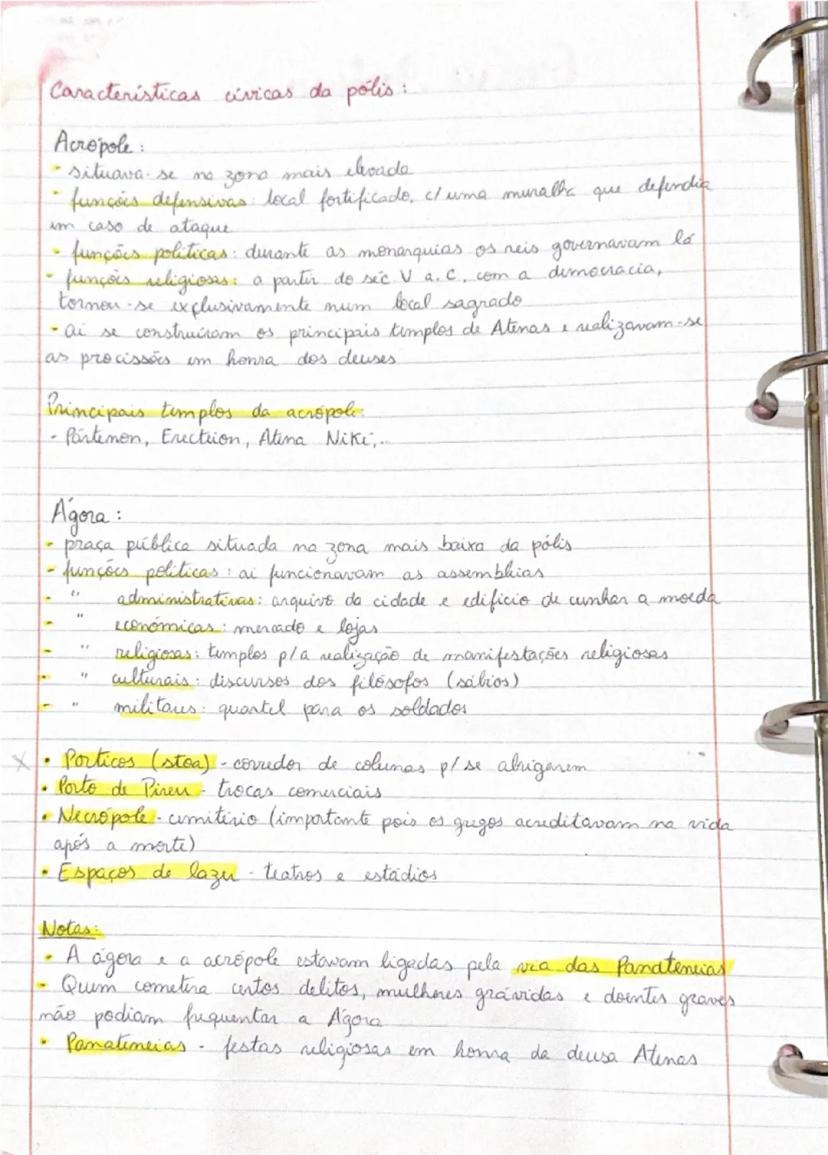 Características cívicas da pólis:
Acrópole:
- situava-se na zona mais elevada
- funções defensivas: local fortificado, c/ uma muralha que defendia
em caso de ataque
- funções políticas: durante as monarquias os reis governavam lá
- funções religiosas: a partir do séc V a.C, com a democracia,
tornou-se exclusivamente num local sagrado
- aí se construíram os principais templos de Atenas e realizavam-se
as procissões em honra dos deuses
Principais templos da acrópole:
- Pártenon, Erectéion, Atena Niké,...
Ágora:
- praça pública situada na zona mais baixa da pólis
- funções políticas: aí funcionavam as assembleias
- " administrativas: arquivo da cidade e edifício de cunhar a moeda
- " económicas: mercado e lojas
- " religiosas: templos p/a realização de manifestações religiosas
- " culturais: discursos dos filósofos (sábios)
- " militares: quartel para os soldados
x • Pórticos (stoa) - corredor de colunas p/ se abrigarem
• Porto de Pireu - trocas comerciais
• Necrópole - cemitério (importante pois os gregos acreditavam na vida
após a morte)
• Espaços de lazer - teatros e estádios
Notas:
- A ágora e a acrópole estavam ligadas pela via das Panateneias
- Quem cometera certos delitos, mulheres grávidas e doentes graves
não podiam frequentar a Ágora
• Panateneias - festas religiosas em honra da deusa Atenas